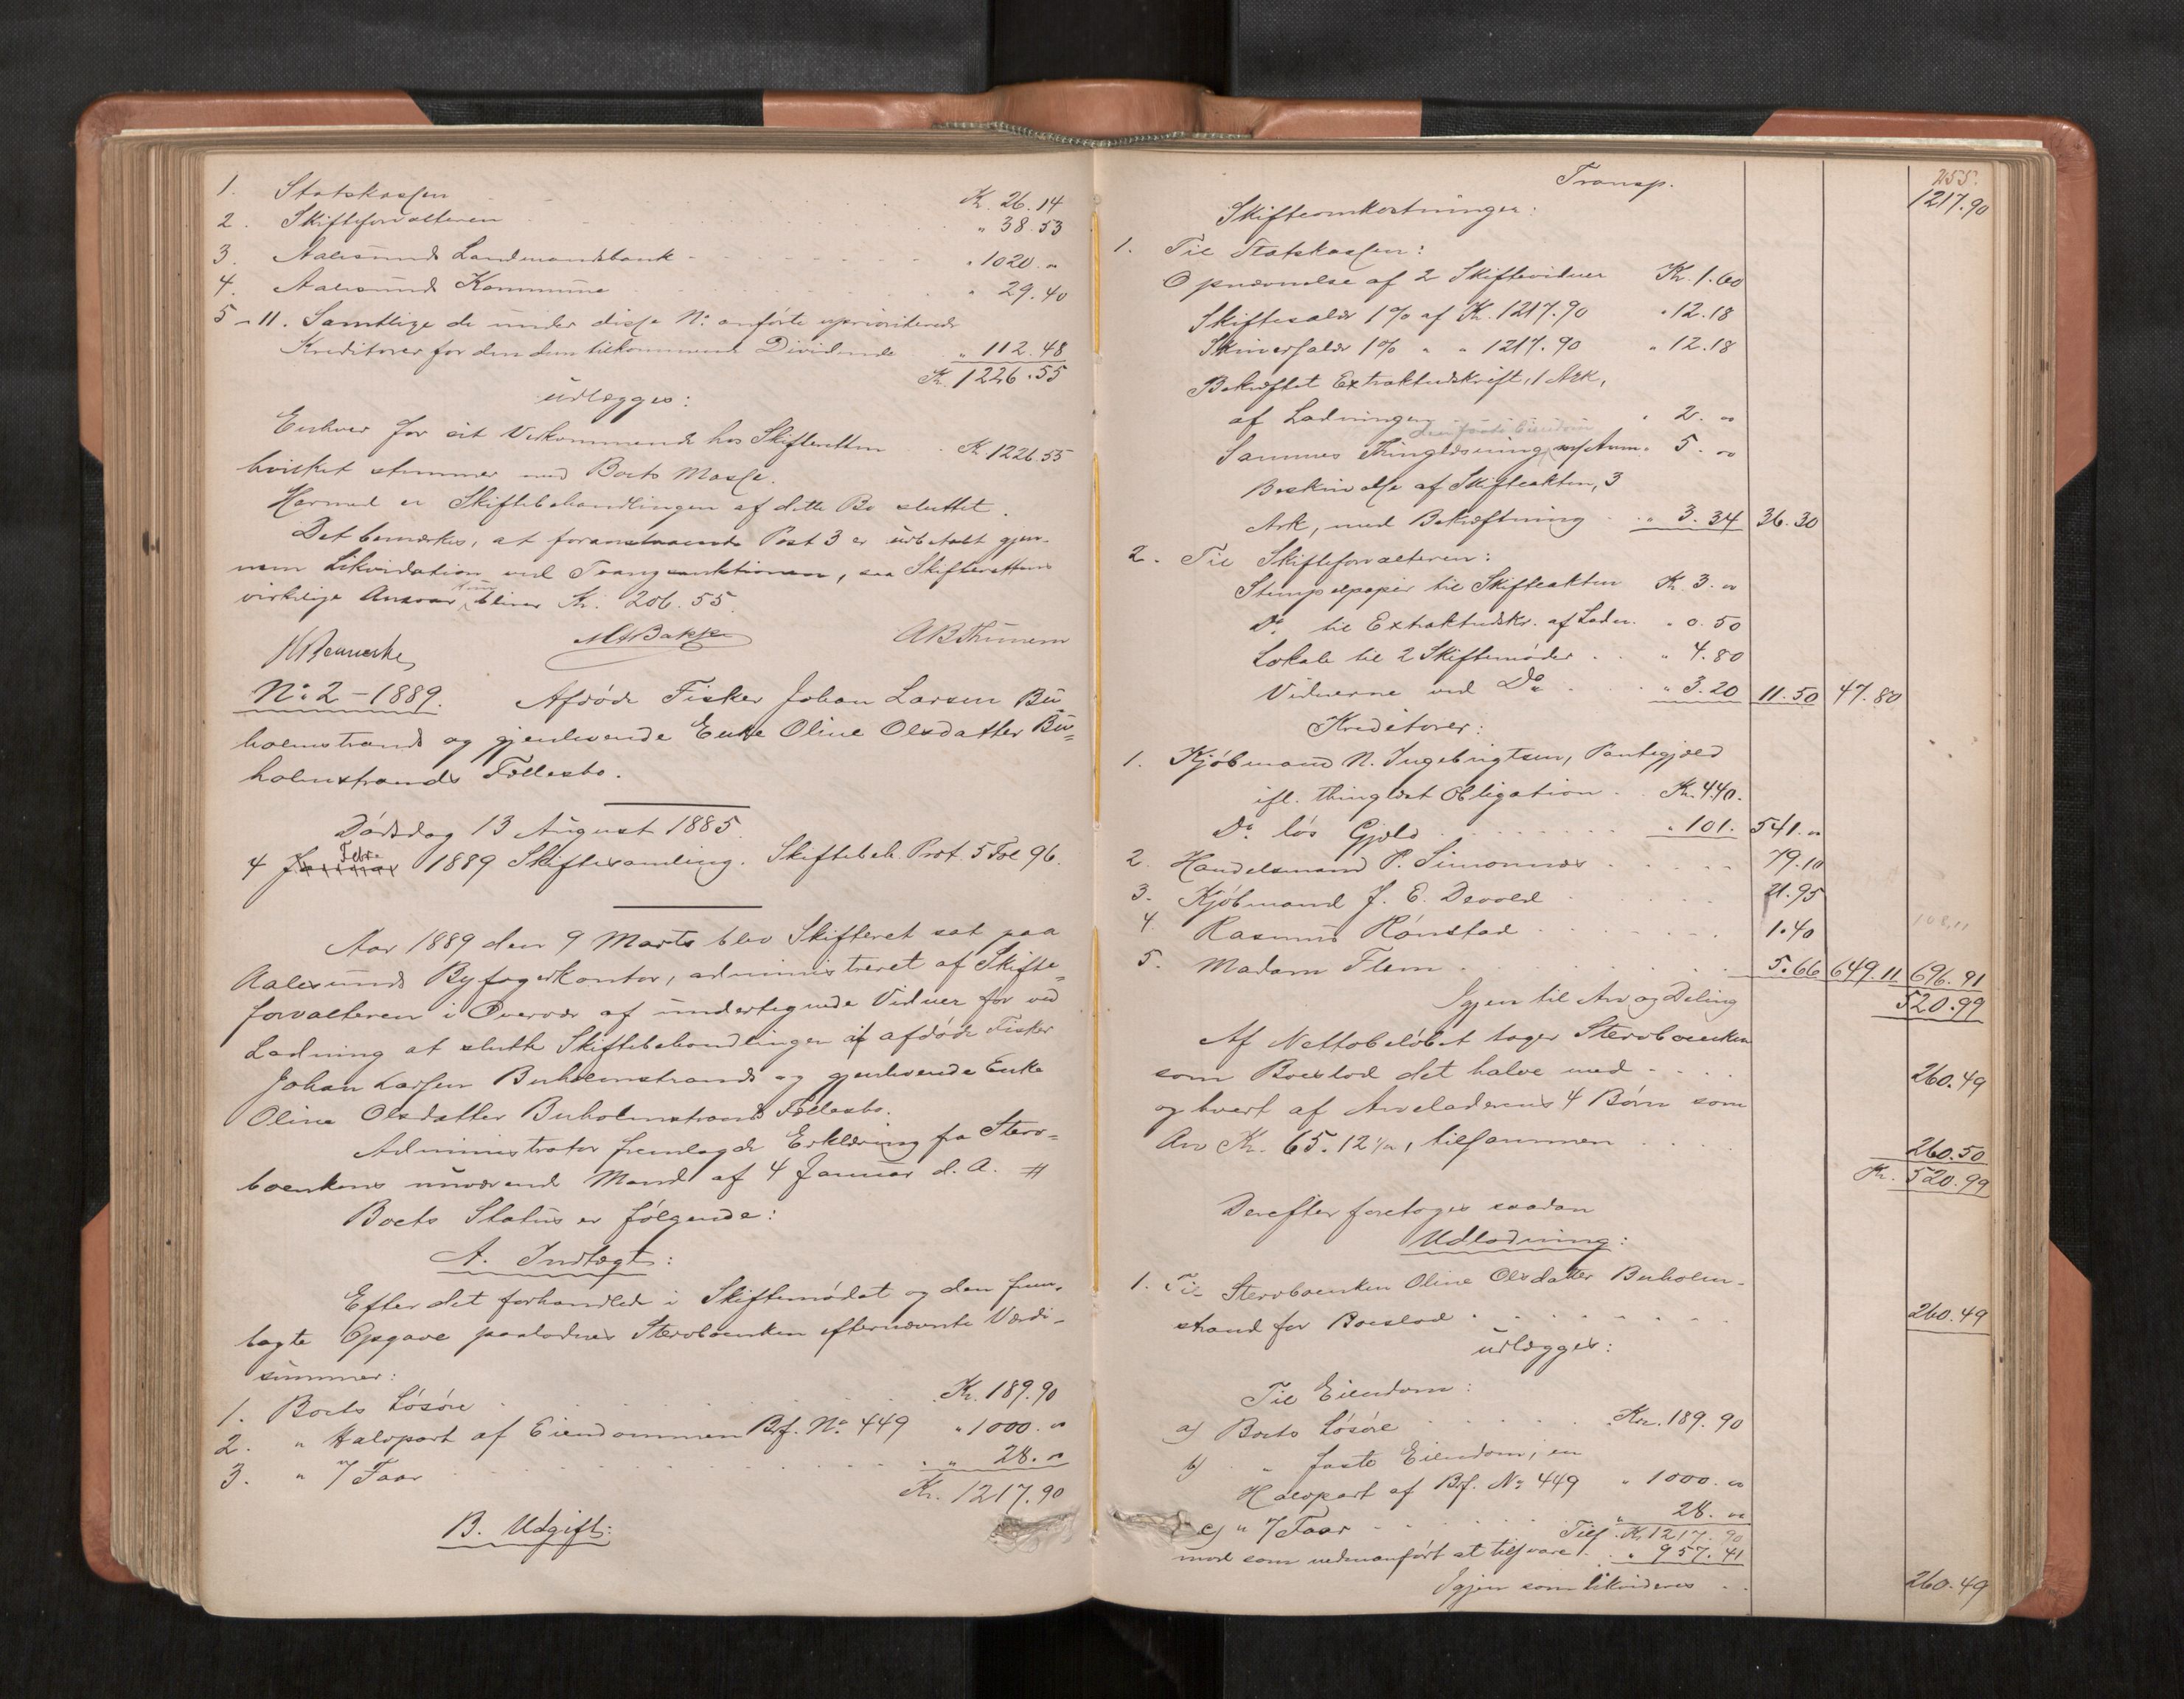 1. Statskassen Kr. 26.14
2. Skifteforvalteren " 38.53
3. Aalesunds Landmandsbank " 1020. "
4. Aalesunds Kommune " 29.40
5-11. Samtlige de under disse No: anførte uprioriterede
Kreditorer for den dem tilkommende Dividende " 112.48
Kr. 1226.55
udlægges:
Enhver for sit Vedkommende hos Skifteretten Kr. 1226.55
hvilket stemmer med Boets Masse.
Hermed er Skiftebehandlingen af dette Bo sluttet.
Det bemærkes, at foranstaaende Post 3 er udbetalt gjen-
nem Likvidation ved Tvangsauktionen, saa Skifterettens
virkelige Ansvar kun bliver Kr. 206.55.
MBakke ABThünem
No: 2 - 1889. Afdøde Fisker Johan Larsen Bu-
holmstrands og gjenlevende Enke Oline Olsdatter Bu=
holmstrands Fællesbo.
Dødsdag 13 August 1885.
4 Januar Febr. 1889 Skiftesamling. Skiftebeh. Prot. 5 Fol 96.
Aar 1889 den 9 Marts blev Skifteret sat paa
Aalesunds Byfogedkontor, administreret af Skifte=
forvalteren i Overvær af undertegnede Vidner for ved
Lodning at slutte Skiftebehandlingen af afdøde Fisker
Johan Larsen Buholmstrands og gjenlevende Enke
Oline Olsdatter Buholmstrands Fællesbo.
Administrator fremlagde Erklæring fra Sterv=
boenkens nuværende Mand af 4 Januar d. A. #
Boets Status er følgende:
A. Indtægt:
Efter det forhandlede i Skiftemødet og den frem-
lagte Opgave paalodnes Stervboenken efternævnte Værdi-
summer:
1. Boets Løsøre Kr. 189.90
2. " Halvpart af Eiendommen Brf. No: 449 " 1000. "
3. " 7 Faar " 28. "
Kr. 1217.90
B. Udgift:
255.
Transp. 1217.90
Skifteomkostninger:
1. Til Statskassen:
Opnævnelse af 2 Skiftevidner Kr. 1.60
Skiftesalær 1% af Kr. 1217.90 " 12.18
Skriversalær 1% " " 1217.90 " 12.18
Bekræftet Extraktudskrift, 1 Ark,
af Lodningen " 2. "
den faste Eiendom
Sammes Thinglæsning m/Anm. 5. "
Beskrivelse af Skifteakten, 3
Ark, med Bekræftning " 3.34 36.30
2. Til Skifteforvalteren:
Stempelpapir til Skifteakten Kr. 3. "
Do til Extraktudskr. af Lodn. " 0.50
Lokale til 2 Skiftemøder " 4.80
Vidnerne ved Do " 3.20 11.50 47.80
Kreditorer:
1. Kjøbmand N. Ingebrigtsen, Pantegjæld
ifl. thinglæst Obligation Kr. 440.
Do løs Gjæld " 101. 541. "
2. Handelsmand P. Simonnæs 79.10
3. Kjøbmand J. E. Devold 21.95
4. Rasmus Rønstad 1.40
5. Madam Flem 5.66 649.11 696.91
Igjen til Arv og Deling 520.99
Af Nettobeløbet tager Stervboenken
som Boeslod det halve med 260.49
og hvert af Arveladerens 4 Børn som
Arv Kr. 65.12½, tilsammen 260.50
Kr. 520.99
Derefter foretoges saadan
Udlodning:
1. Til Stervboenken Oline Olsdatter Buholm-
strand for Boeslod 260.49
udlægges:
Til Eiendom:
a) Boets Løsøre Kr. 189.90
b) " faste Eiendom, en
Halvpart af Brf. No: 449 " 1000. "
c) " 7 Faar " 28. "
Tils. Kr. 1217.90
mod som nedenanført at tilsvare " 957.41
Igjen som likvideres 260.49